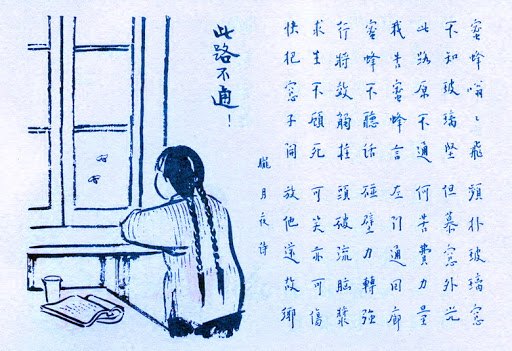 此路不通！
蜜蜂嗡〻飛 頭扑玻璃窓
不知玻璃堅 但慕窓外光
此路原不通 何苦費力量
我告蜜蜂言 左引通回廊
蜜蜂不聽話 碰壁力轉強
行將效觸柱 頭破流腦漿
求生不顧死 可笑亦可傷
快把窓子開 放他還故鄉
朧月夜詩